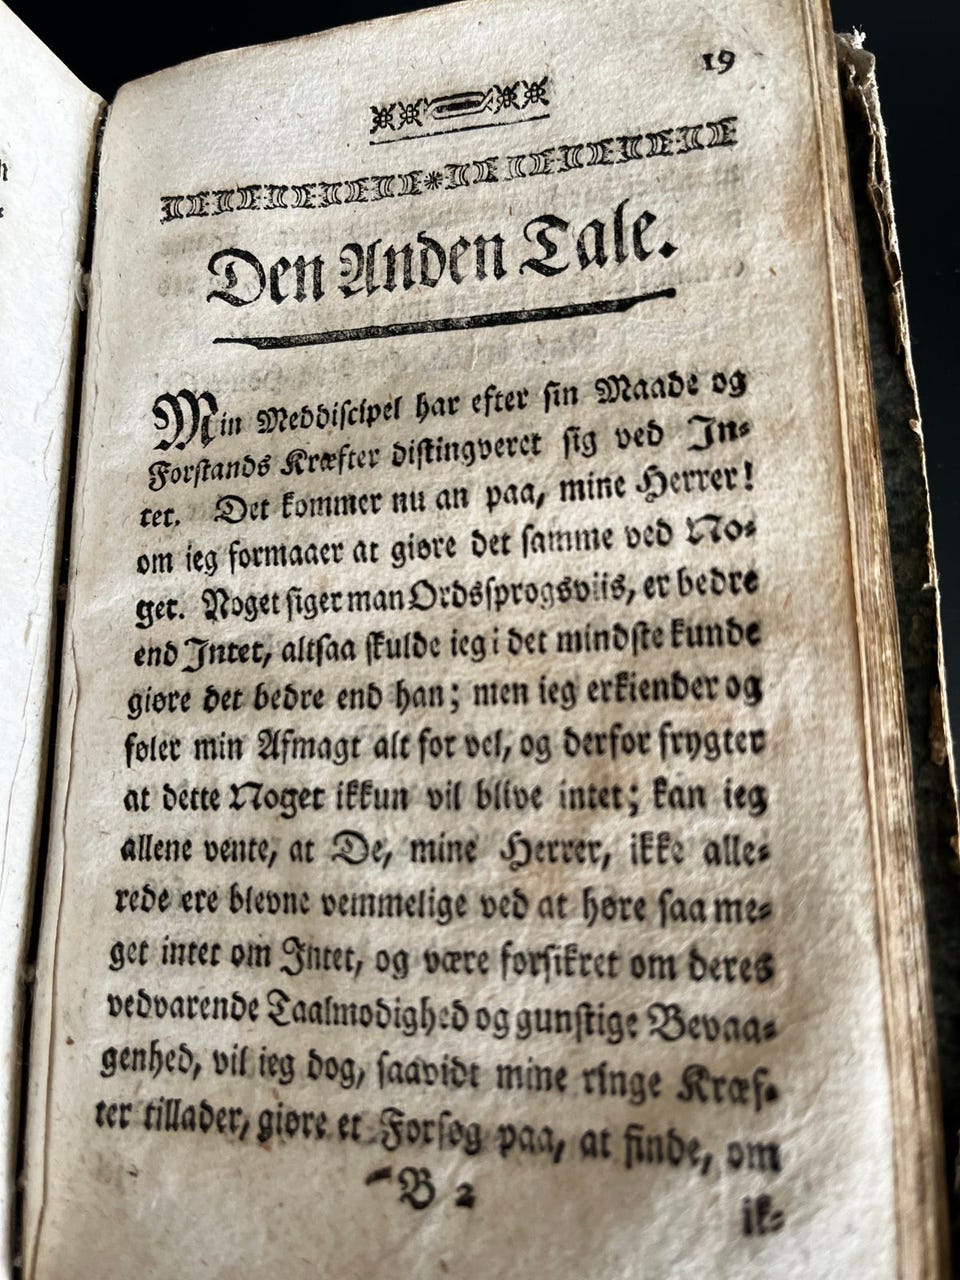 19
Den Anden Tale.
Min Meddiscipel har efter sin Maade og
Forstands Kræfter distingveret sig ved In-
tet. Det kommer nu an paa, mine Herrer!
om ieg formaaer at giøre det samme ved No-
get. Noget siger man Ordssprogsviis, er bedre
end Intet, altsaa skulde ieg i det mindste kunde
giøre det bedre end han; men ieg erkiender og
føler min Afmagt alt for vel, og derfor frygter
at dette Noget ikkun vil blive intet; kan ieg
allene vente, at De, mine Herrer, ikke alle-
rede ere blevne vemmelige ved at høre saa me-
get intet om Intet, og være forsikret om deres
vedvarende Taalmodighed og gunstige Bevaa-
genhed, vil ieg dog, saavidt mine ringe Kræf-
ter tillader, giøre et Forsøg paa, at finde, om
B 2
ik-